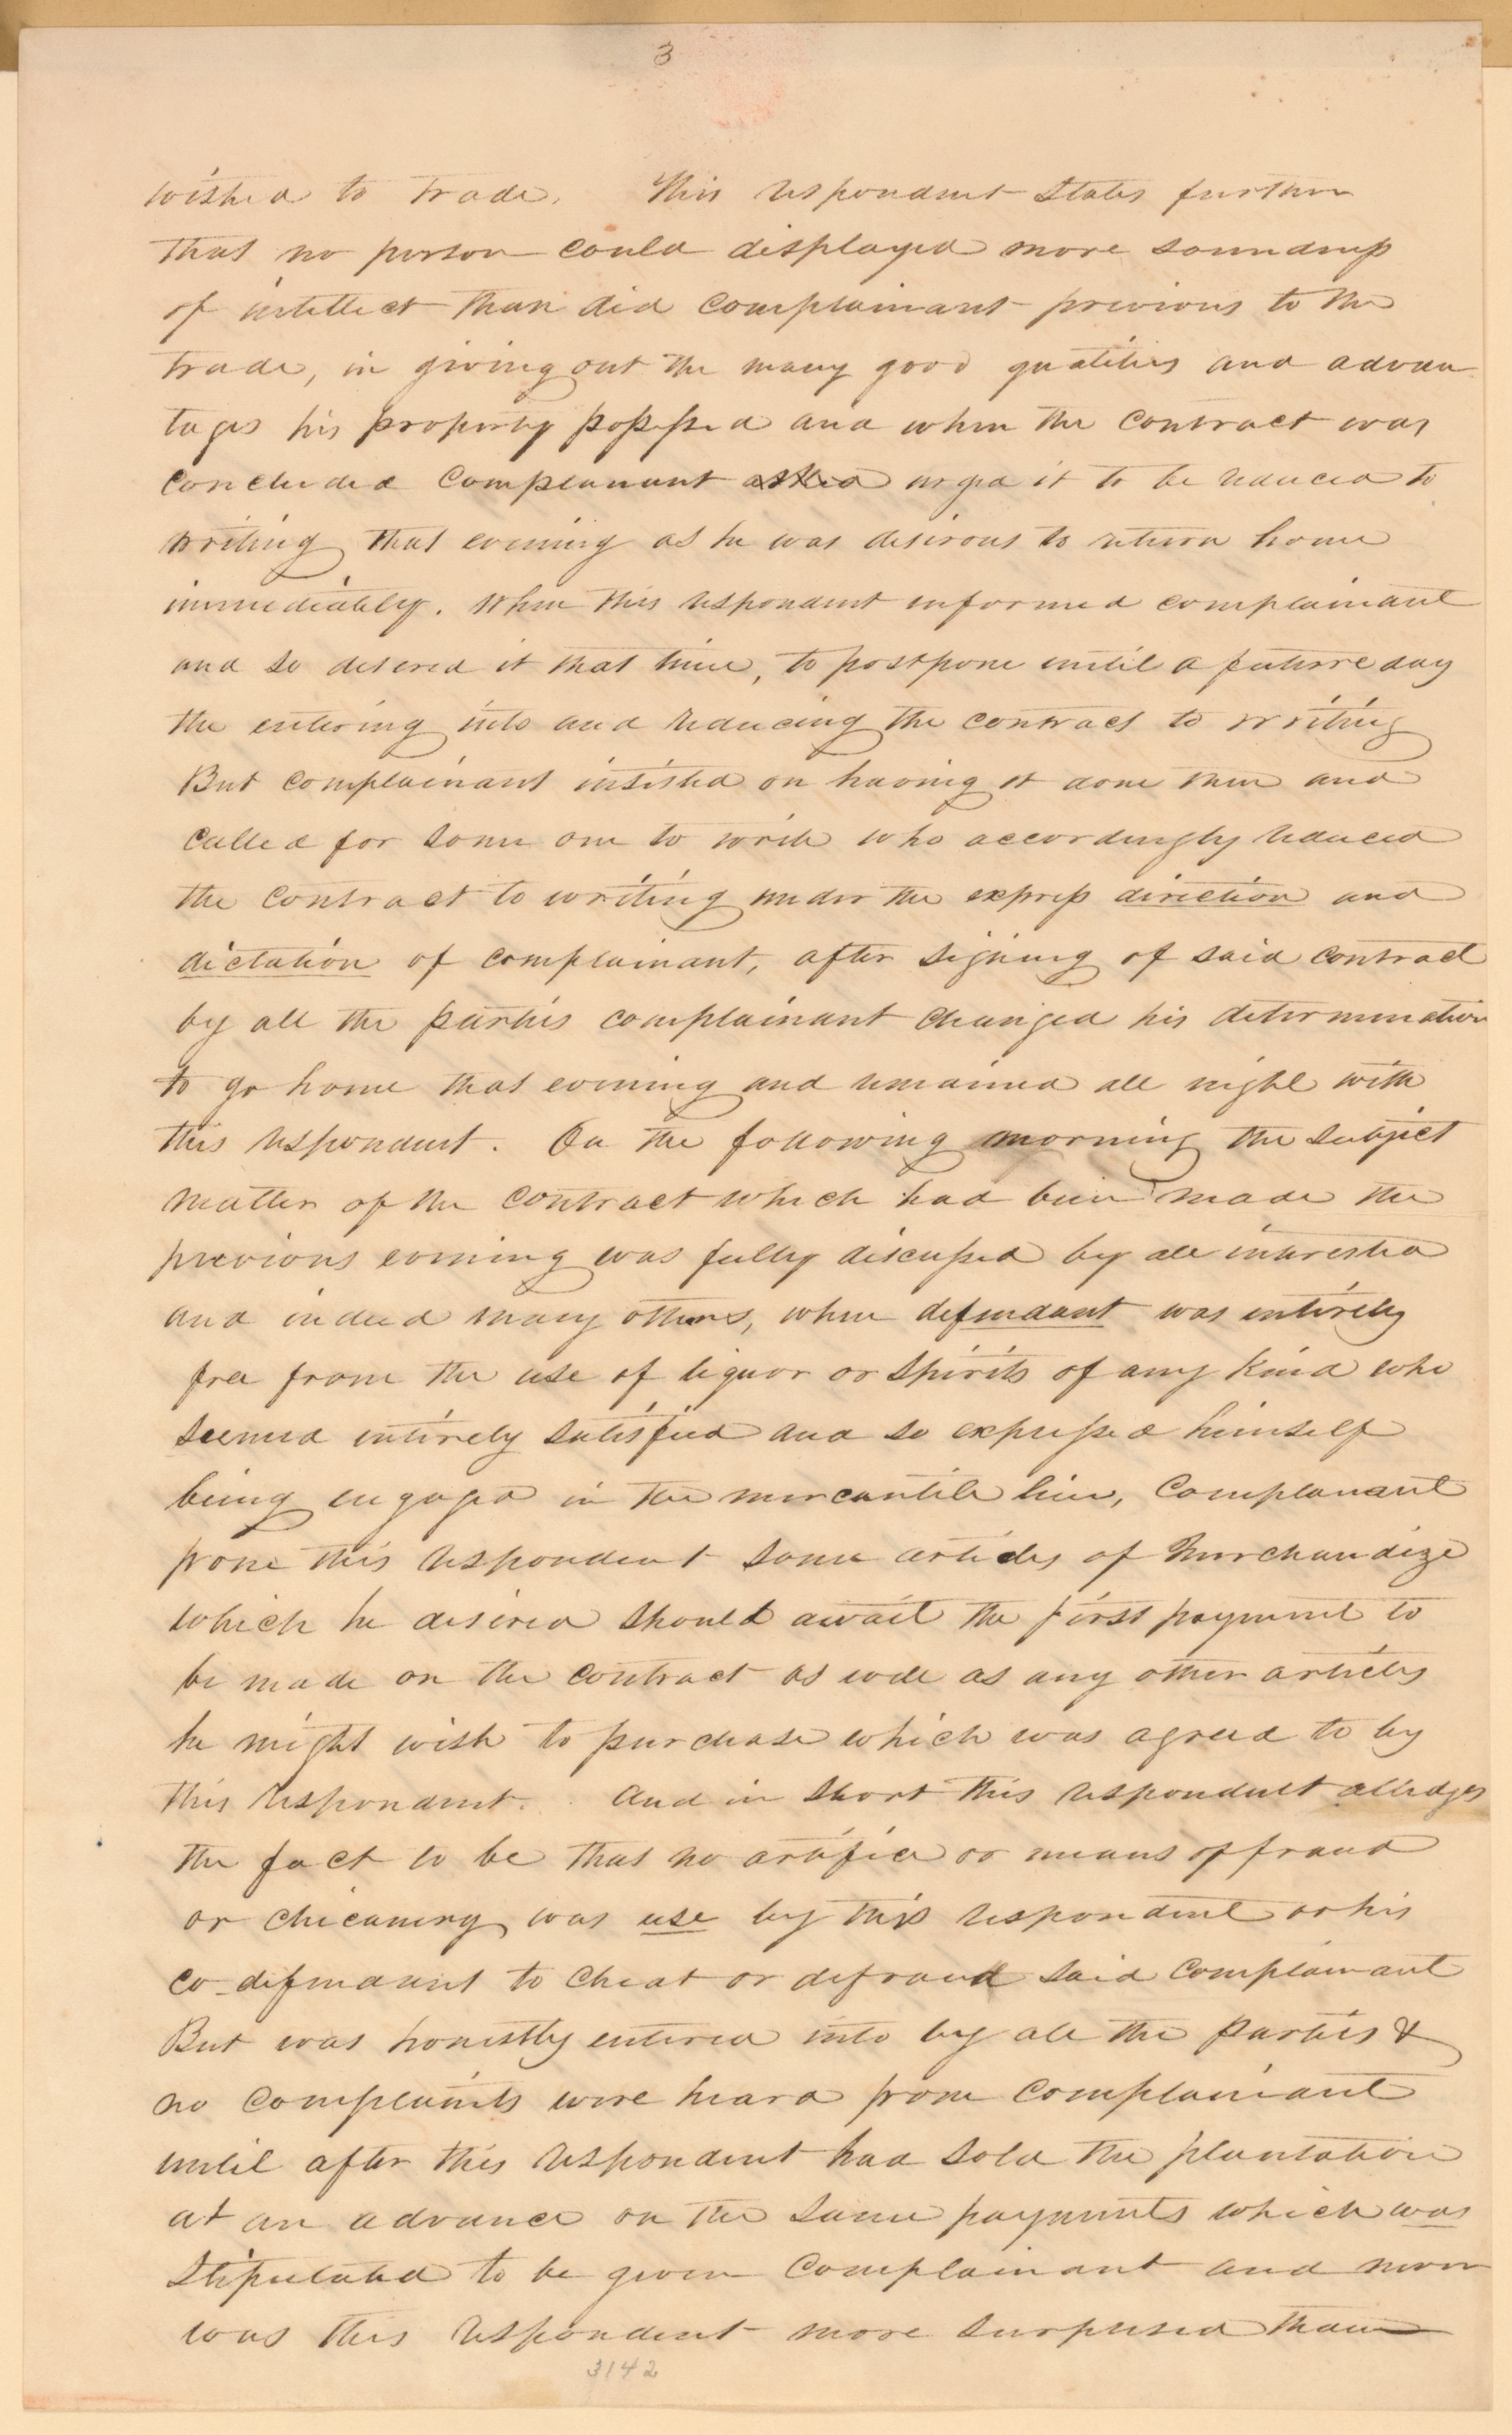 3
wished to trade. This respondent states further
that no person could displayed more soundness
of intellect than did complainant previous to the
trade, in giving out the many good qualities and advan
tages his property possessed and when the contract was
concluded complanant asked urged it to be reduced to
writing that evening as he was desirous to return home
immediately. When this respondent informed complainant
and so desired it that time, to postpone until a future day
the entering into and reducing the contract to writing
But complainant insisted on having it done then and
called for some one to write who accordingly reduced
the contract to writing under the express direction and
dictation of complainant, after signing of said contract
by all the parties complainant changed his determination
to go home that evening and remained all night with
this respondent. On the following morning the subject
matter of the contract which had been made the
previous evening was fully discussed by all interested
and indeed many others, when defendant was entirely
free from the use of liquor or spirits of any kind who
seemed entirely satisfied and so expressed himself
being engaged in the mercantile line, Complanant
from this respondent some articles of Merchandize
which he desired should await the first payment to
be made on the contract as well as any other articles
he might wish to purchase which was agreed to by
this respondent. And in short this respondent alledges
the fact to be that no artifice or means of fraud
or chicanery was use by this respondent or his
co-defendant to cheat or defraud said complainant
But was honestly entered into by all the parties &
no complaints were heard from complainant
until after this respondent had sold the plantation
at an advance on the same payments which was
stipulated to be given Complainant and never
was this respondent more surprised than
3142